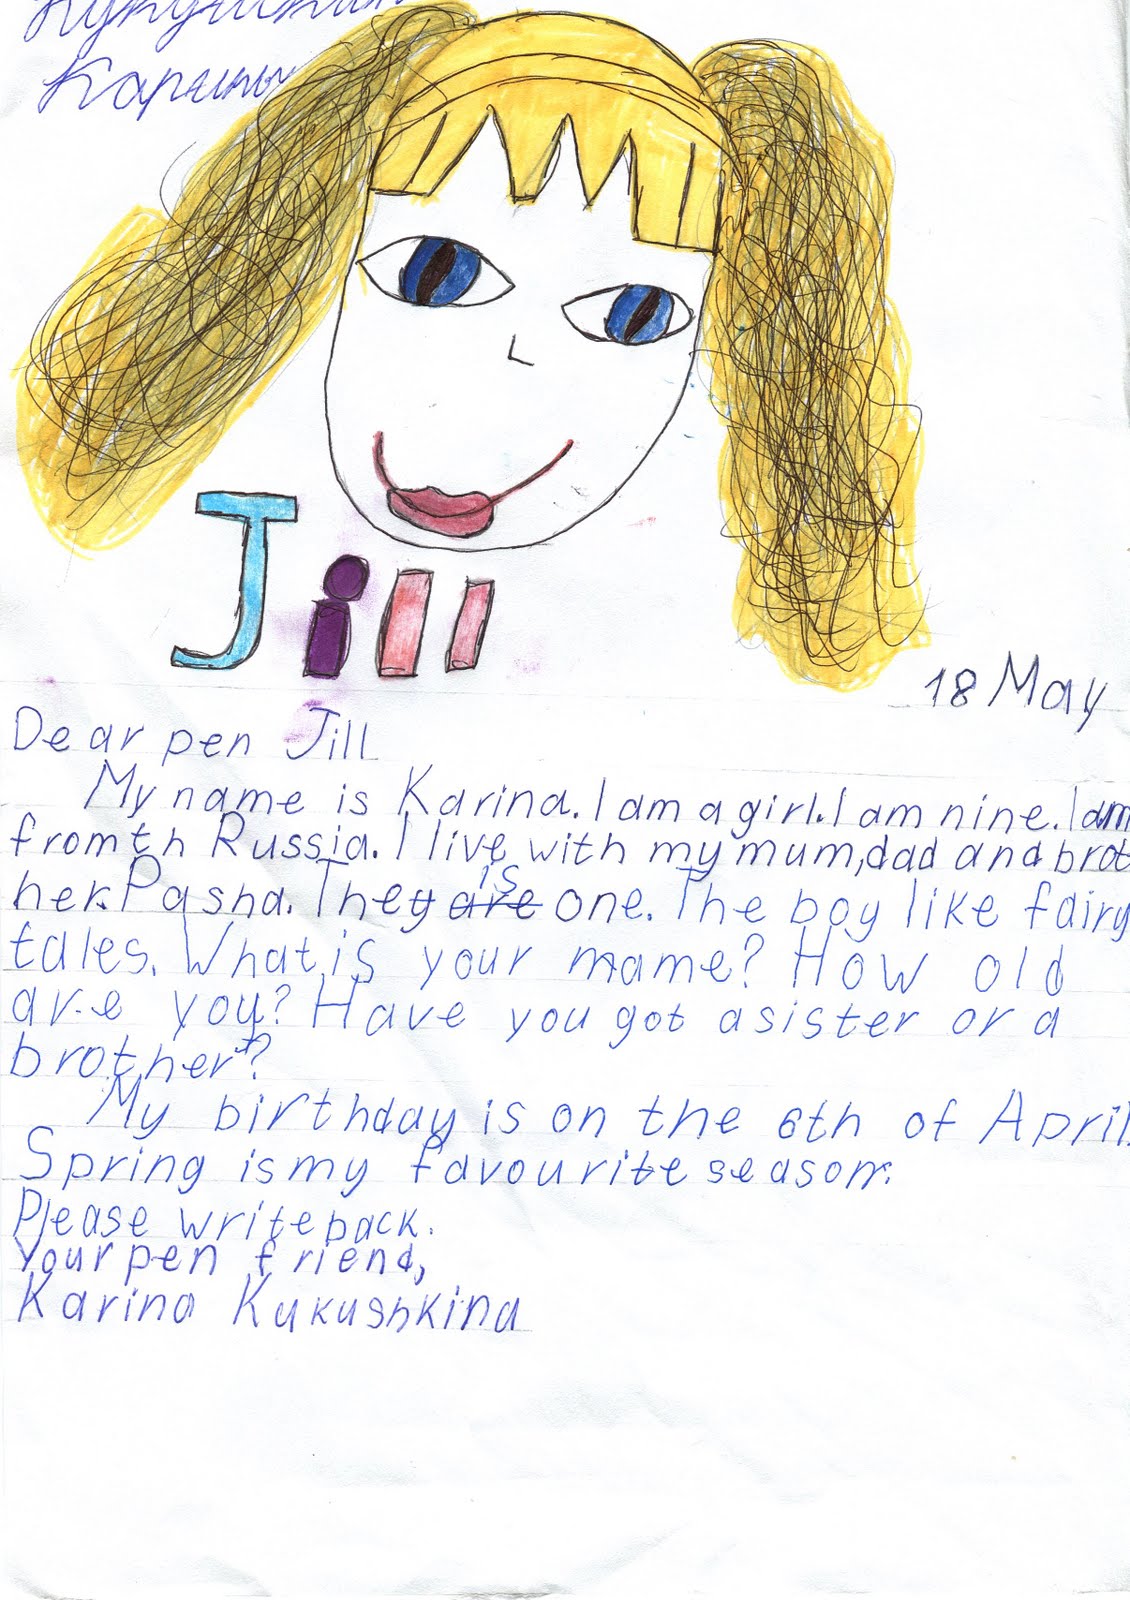 Карины
Jill
18 May
Dear pen Jill
My name is Karina. I am a girl. I am nine. I am
from th Russia. I live with my mum, dad and brot
her. Pasha. They are is one. The boy like fairy
tales. What is your mame? How old
are you? Have you got a sister or a
brother?
My birthday is on the 6th of April.
Spring is my favourite season.
Please write back.
Your pen friend,
Karina Kukushkina